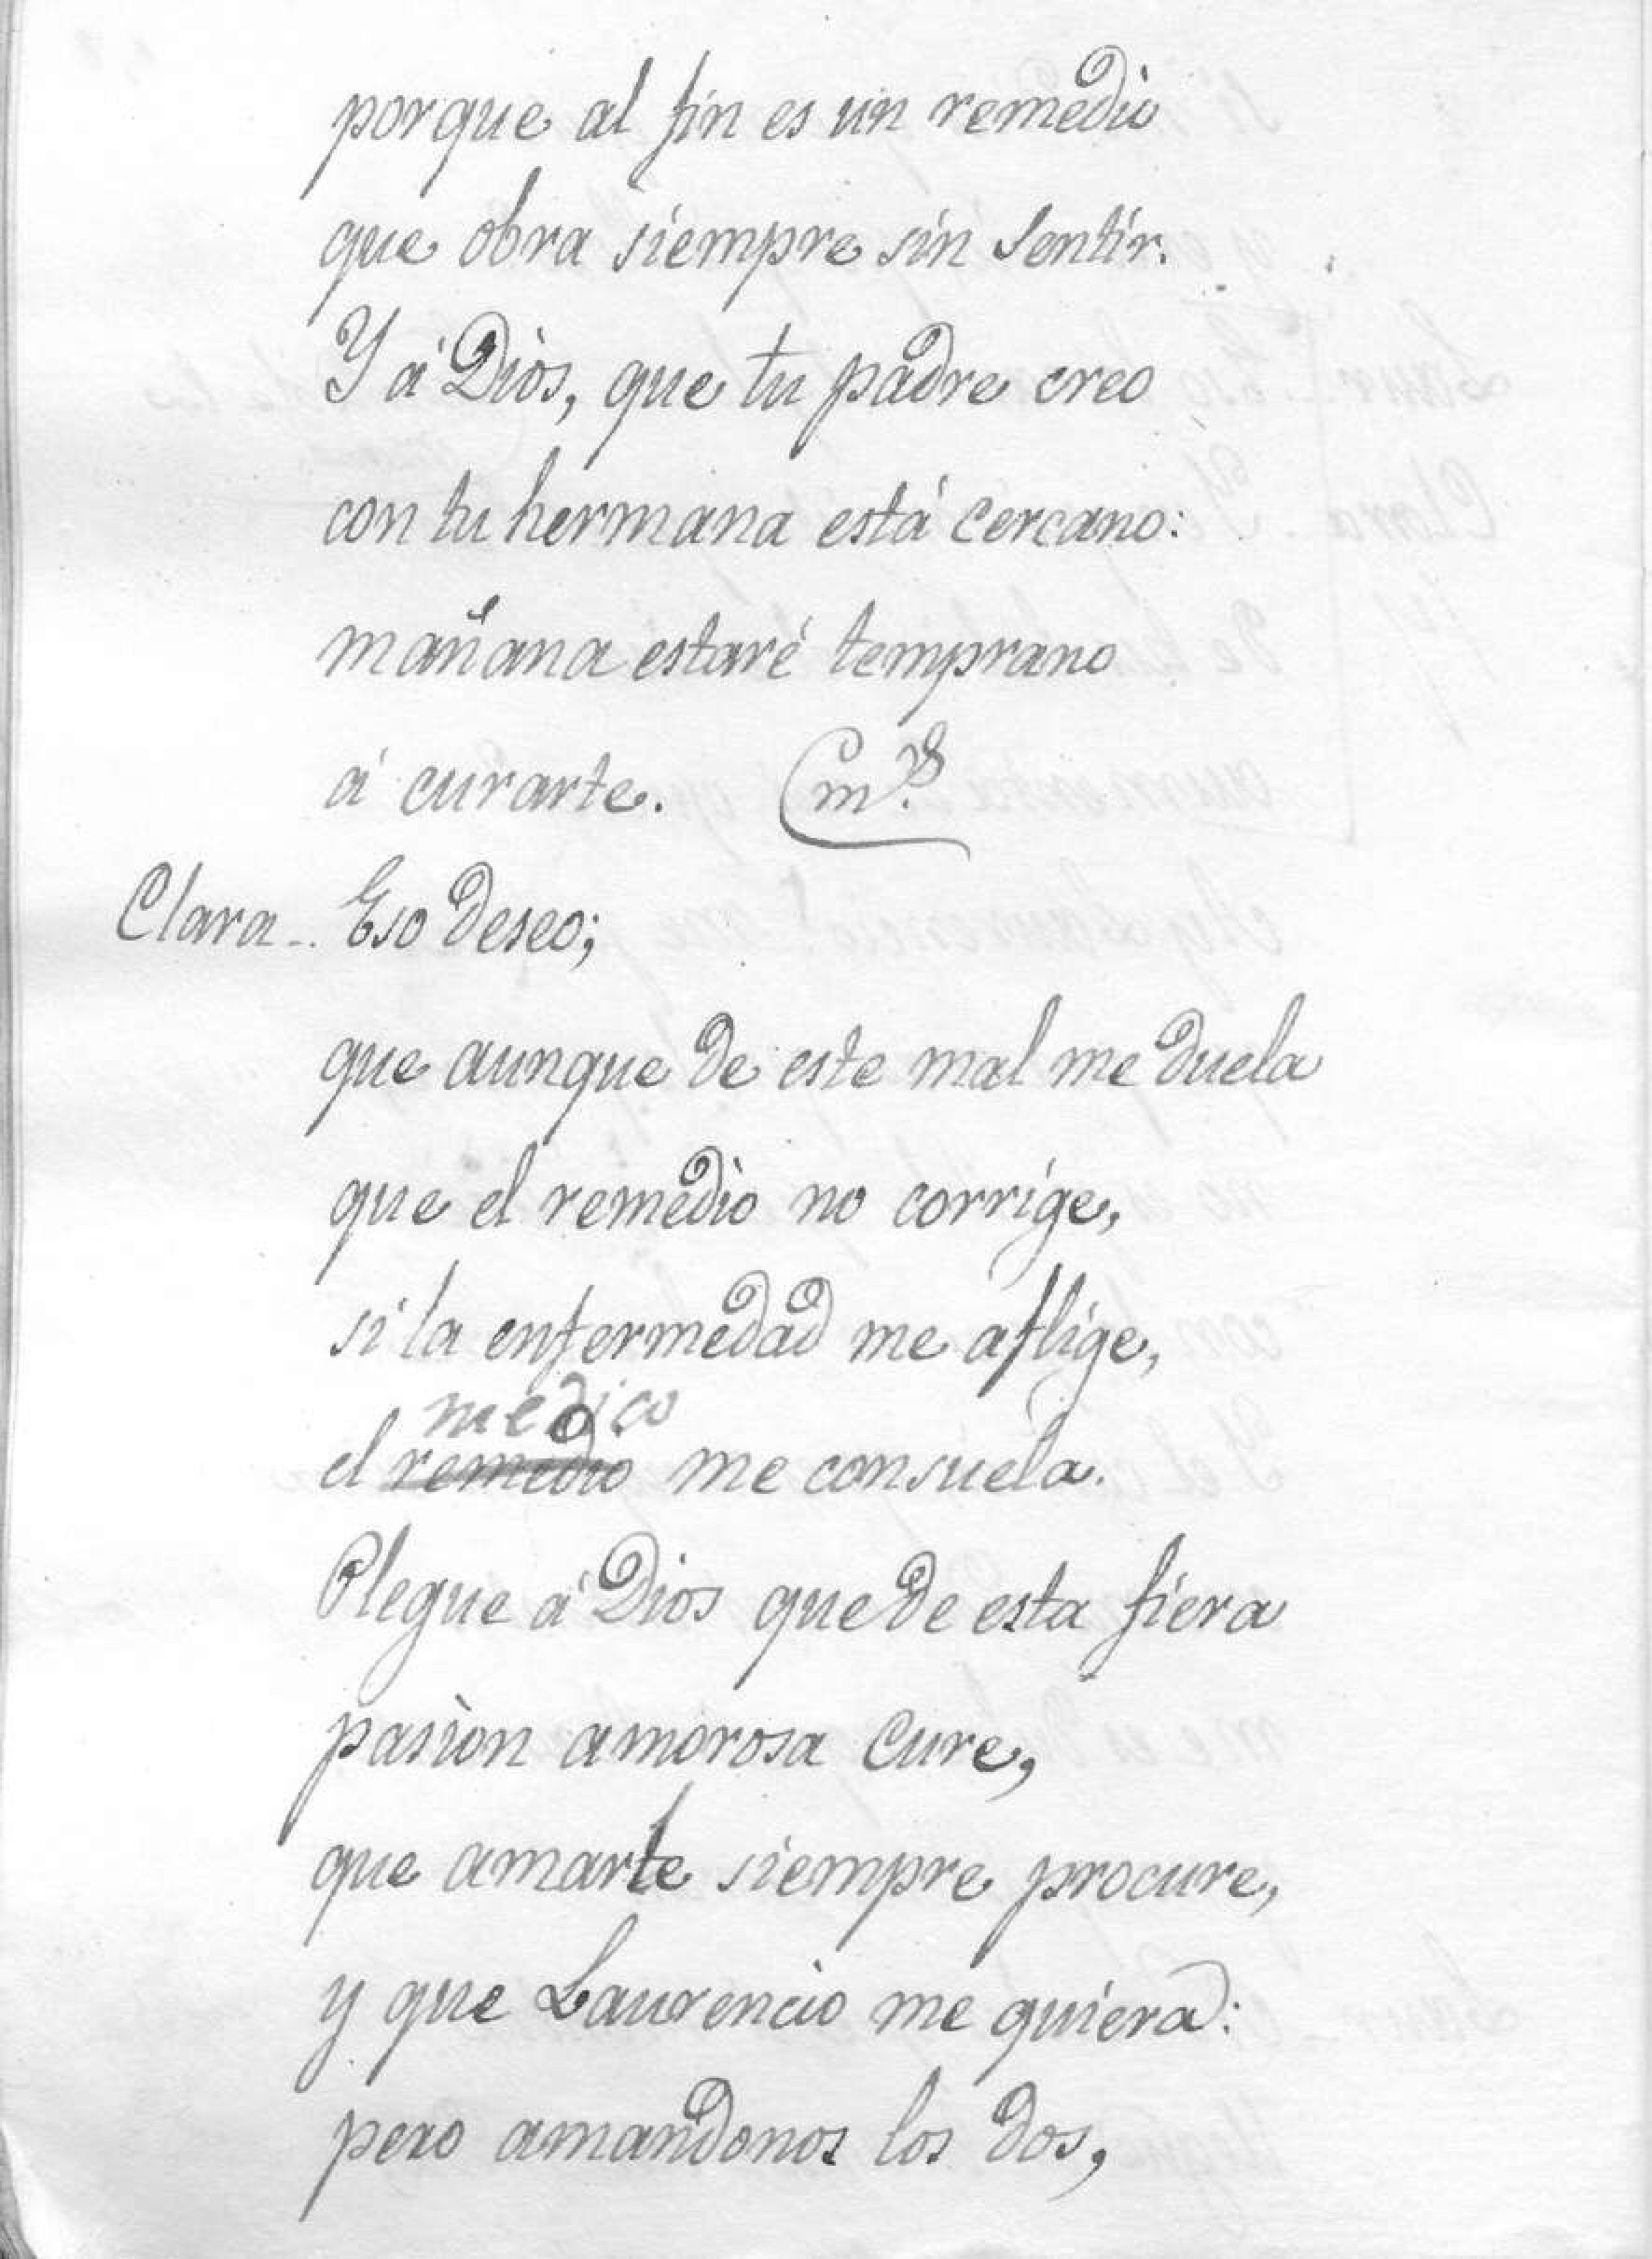 porque al fin es un remedio
que obra siempre sin sentir.
Y á Dios, que tu padre creo
con tu hermana está cercano:
mañana estaré temprano
á curarte.
Clara - Eso deseo;
que aunque de este mal me duela
que el remedio no corrige,
si la enfermedad me aflige,
medico
el remedio me consuela.
Plegue á Dios que de esta fiera
pasion amorosa cure,
que amarte siempre procure,
y que Laurencio me quiera:
pero amandonos los dos,